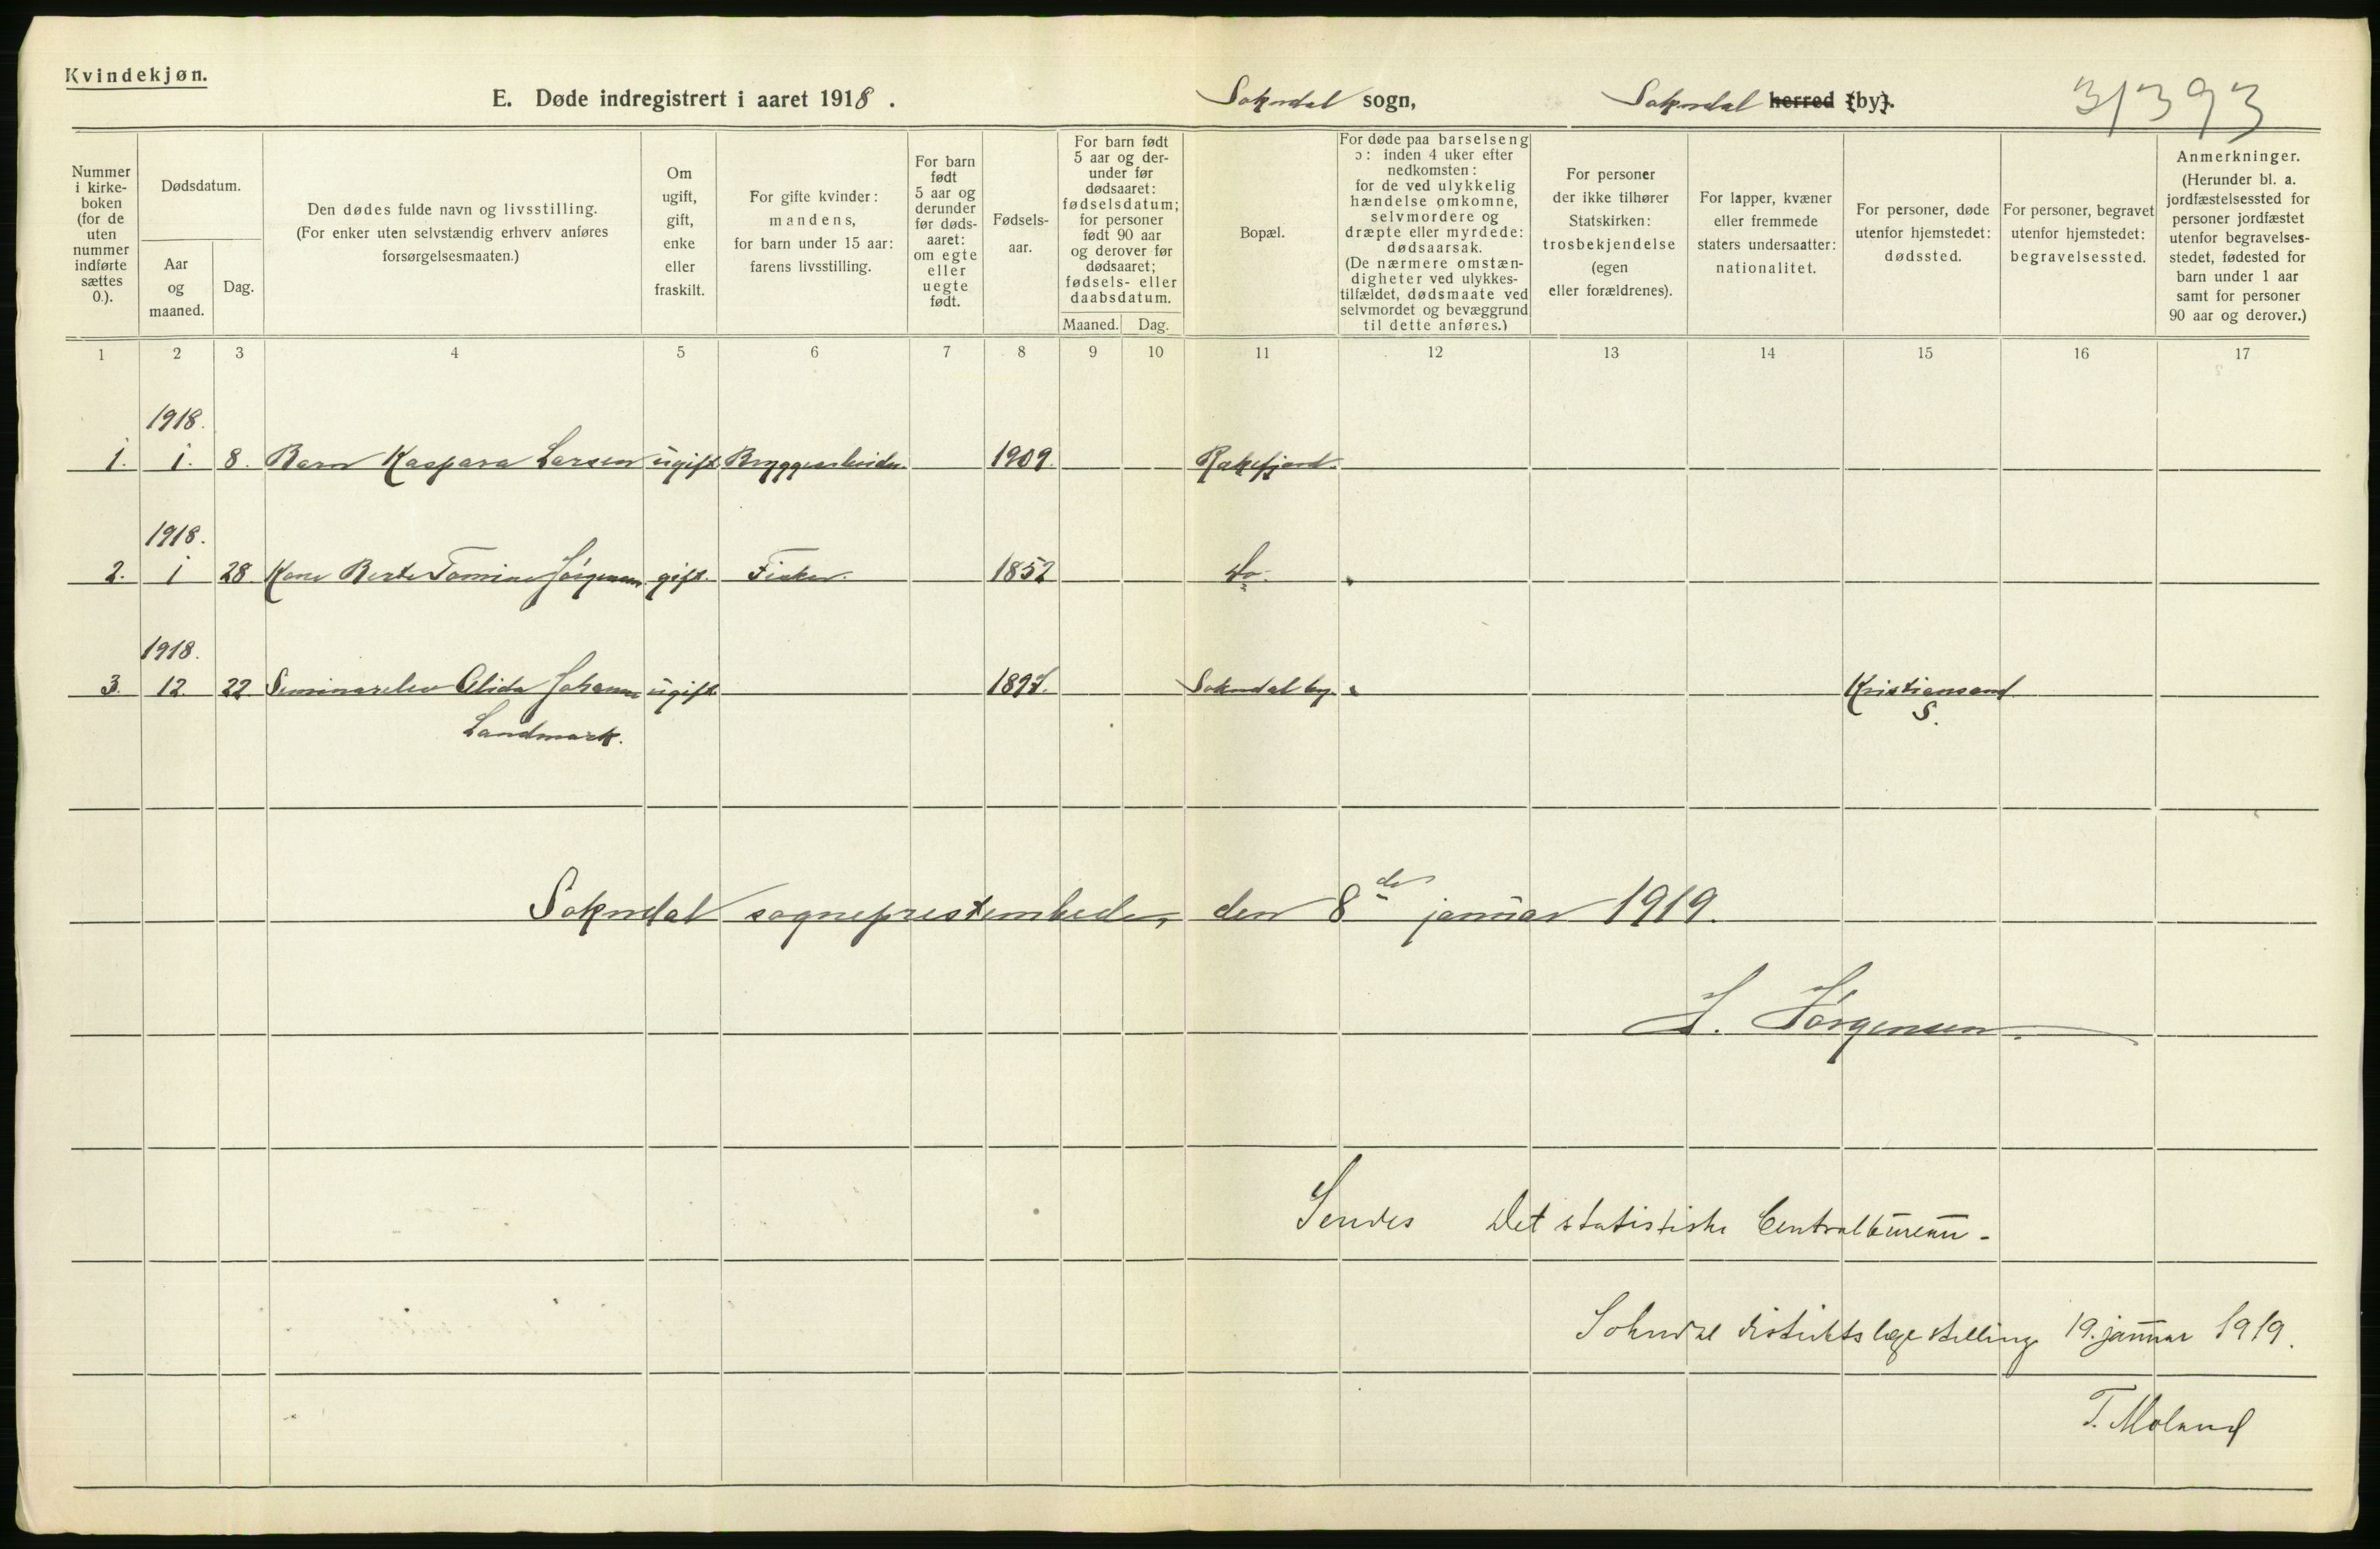 Kvindekjøn.
E. Døde indregistrert i aaret 1918. Sokndal sogn, Sokndal herred (by).
31393
Nummer
i kirke-
boken
(for de
uten
nummer
indførte
sættes
0.).
Dødsdatum.
Aar
og
maaned.
Dag.
Den dødes fulde navn og livsstilling.
(For enker uten selvstændig erhverv anføres
forsørgelsesmaaten.)
Om
ugift,
gift,
enke
eller
fraskilt.
For gifte kvinder:
mandens,
for barn under 15 aar:
farens livsstilling.
For barn
født
5 aar og
derunder
før døds-
aaret:
om egte
eller
uegte
født.
Fødsels-
aar.
For barn født
5 aar og der-
under før
dødsaaret:
fødselsdatum;
for personer
født 90 aar
og derover før
dødsaaret;
fødsels- eller
daabsdatum.
Maaned. Dag.
Bopæl.
For døde paa barselseng
ɔ: inden 4 uker efter
nedkomsten:
for de ved ulykkelig
hændelse omkomne,
selvmordere og
dræpte eller myrdede:
dødsaarsak.
(De nærmere omstæn-
digheter ved ulykkes-
tilfældet, dødsmaate ved
selvmordet og bevæggrund
til dette anføres.)
For personer
der ikke tilhører
Statskirken:
trosbekjendelse
(egen
eller forældrenes).
For lapper, kvæner
eller fremmede
staters undersaatter:
nationalitet.
For personer, døde
utenfor hjemstedet:
dødssted.
For personer, begravet
utenfor hjemstedet:
begravelsessted.
Anmerkninger.
(Herunder bl. a.
jordfæstelsessted for
personer jordfæstet
utenfor begravelses-
stedet, fødested for
barn under 1 aar
samt for personer
90 aar og derover.)
1 2 3 4 5 6 7 8 9 10 11 12 13 14 15 16 17
1918.
1. 1. 8. Barn Kaspara Larsen ugift Bryggearbeider. 1909. Rakefjord.
1918.
2. 1 28 Kone Berte Tomine Jörgensen gift. Fisker. 1852 Do.
1918.
3. 12. 22 Seminarelev Alida Johanne ugift 1897. Sokndal by. Kristiansand
Landmark. S.
Sokndal sogneprestembede, den 8de januar 1919.
J. Jörgensen.
Sendes Det statistiske Centralbureau.
Sokndal distriktslægestilling 19. januar 1919.
T. Moland